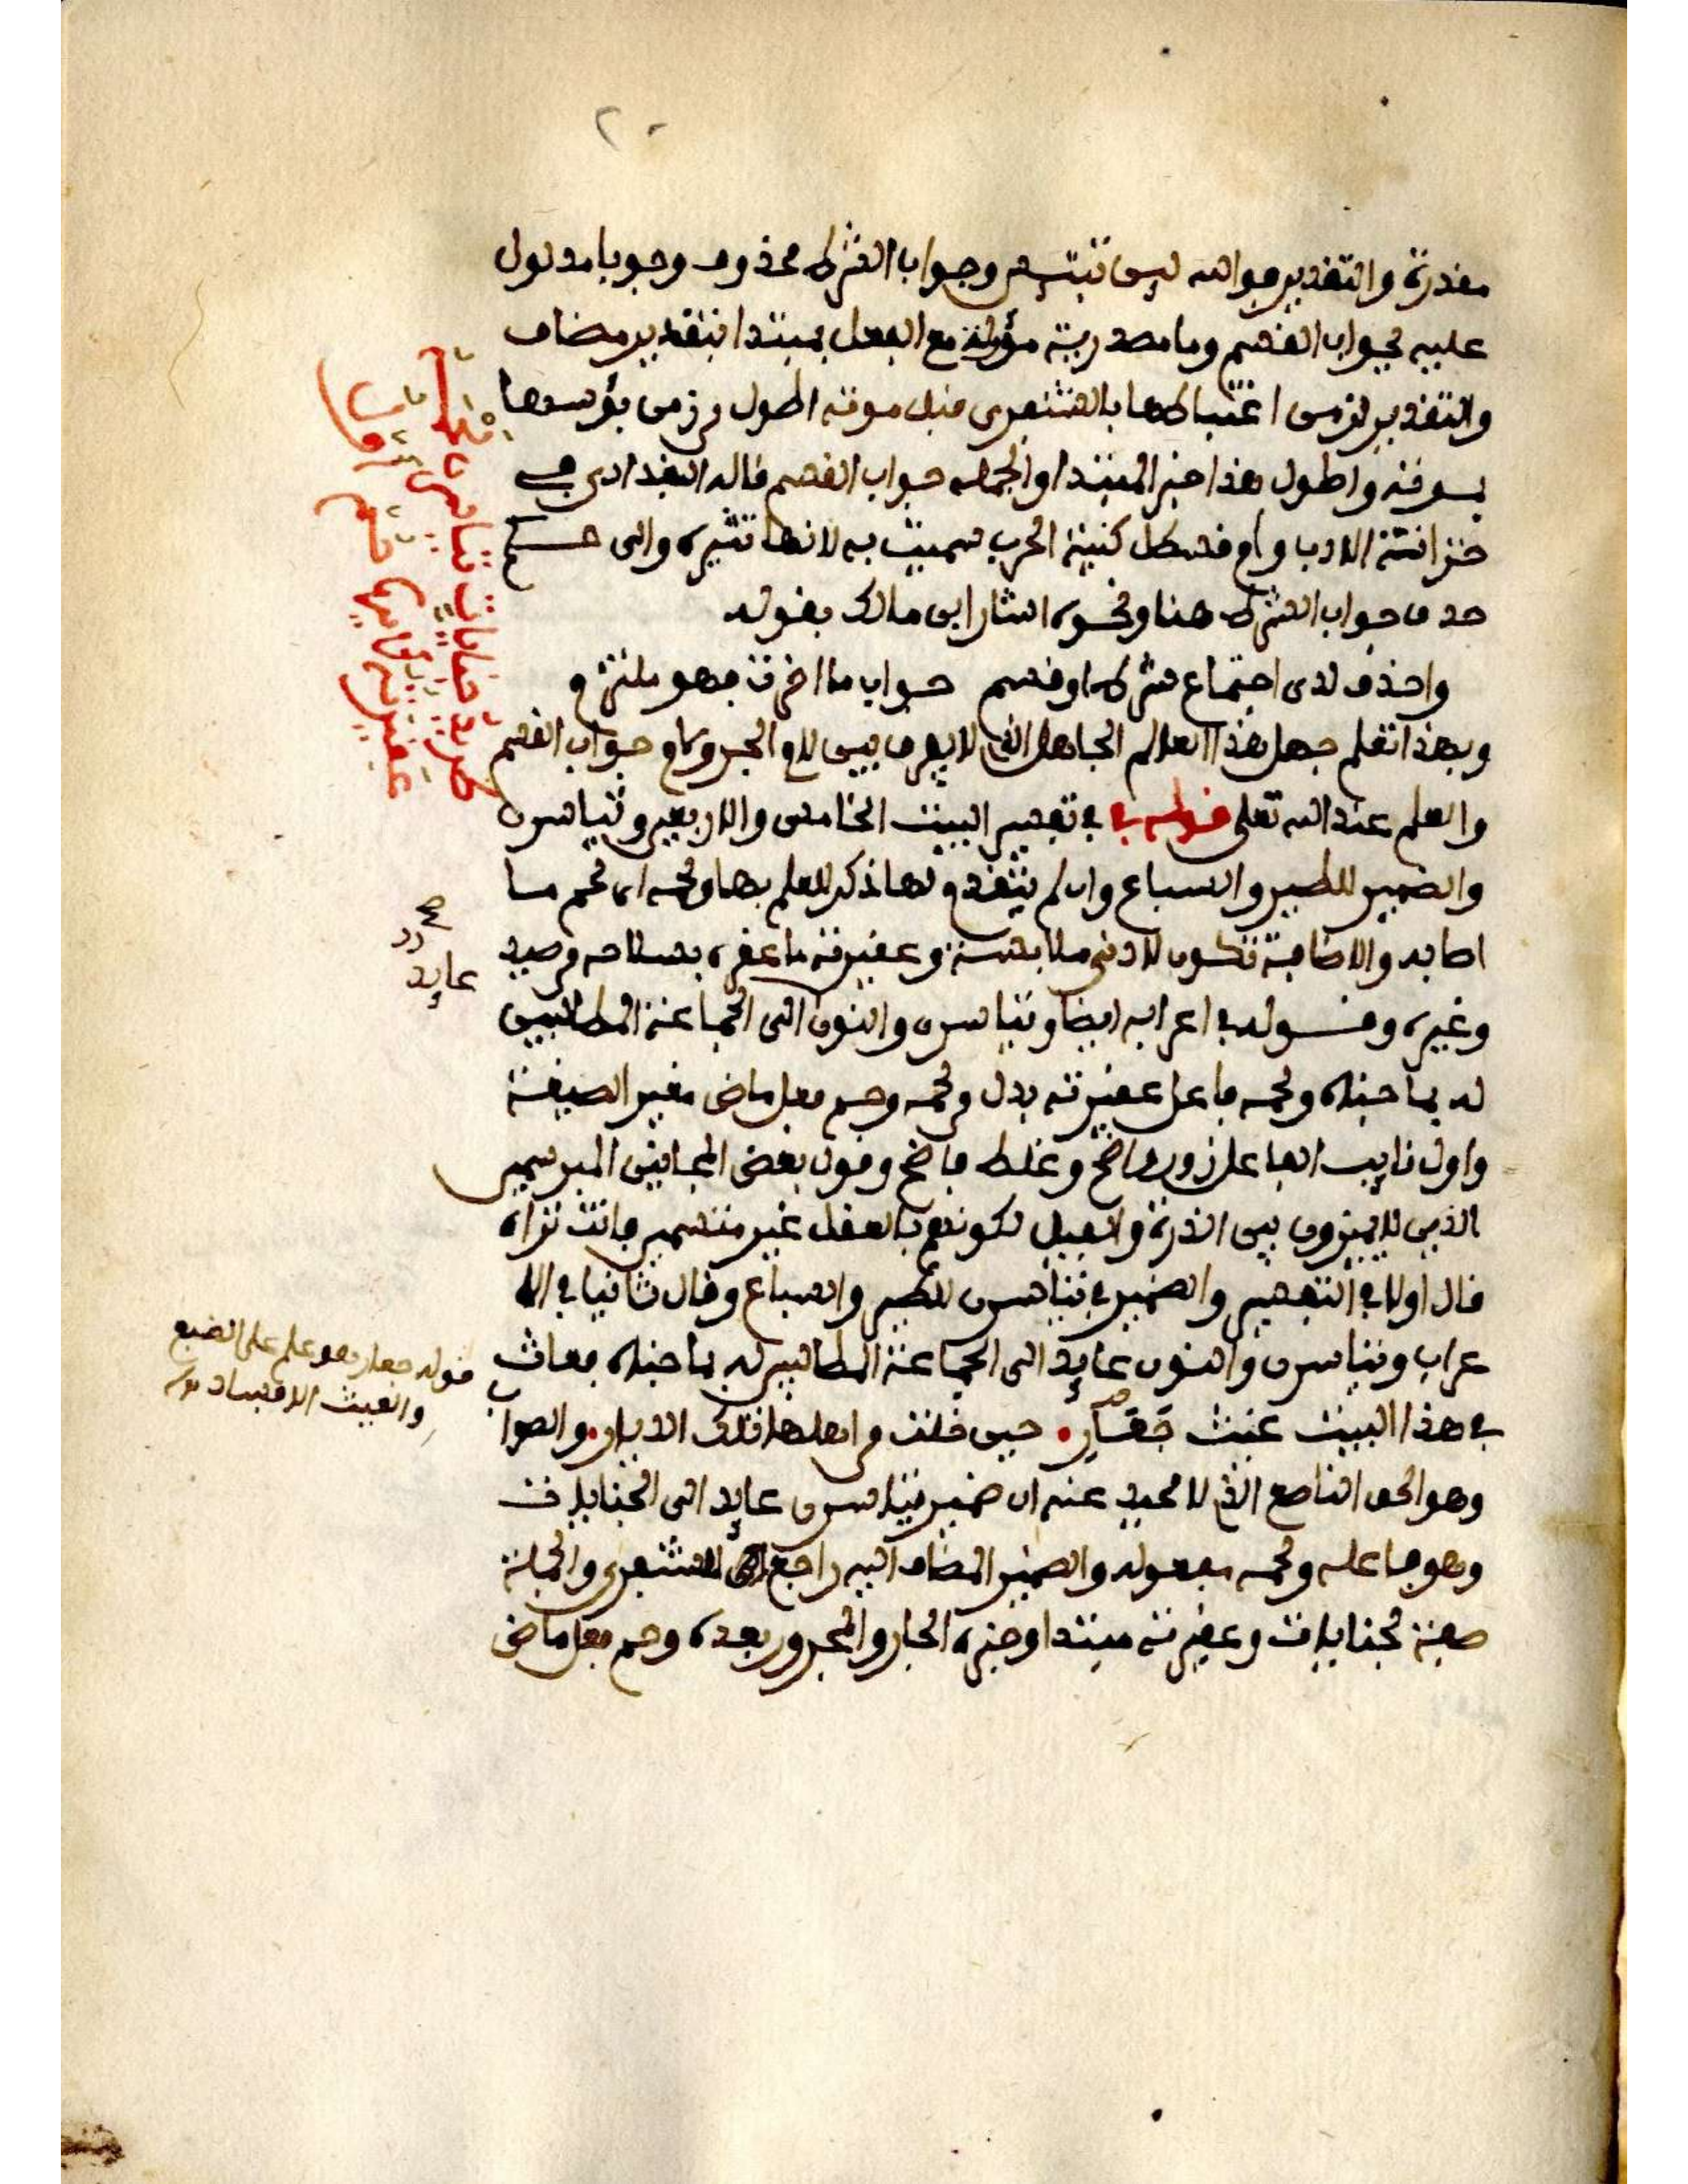 ٢٠
مقدرة والتقدير فوالله ليس تبتئس وجواب الشرط محذوف وجوبا مدلول
عليه بجواب القسم وما مصدرية مؤولة مع الفعل بمبتدا بتقدير مضاف
والتقدير لزمن اغتباطها بالشنفرى قبل موته اطول من زمن بؤسها
بموته واطول هذا خبر المبتدا والجملة جواب القسم قاله البغدادي في
خزانة الادب وام قسطل كنية الحرب سميت به لانها تثيره والى حكم
حذف جواب الشرط هنا ونحوه اشار ابن مالك بقوله
واحذف لدى اجتماع شرط وقسم جواب ما اخرت فهو ملتزم
وبهذا تعلم جهل هذا العالم الجاهل الذي لا يعرف بين لام الجر ولام جواب القسم
والعلم عند الله تعلى قوله في تفسير البيت الخامس والاربعين وتياسرن
والضمير للطير والسباع وان لم يتقدم لها ذكر للعلم بها ولحمه اي لحم ما
اصابه والاضافة تكون لادنى ملابسة وعقيرته ما عقره بسلاحه من صيد
وغيره وقوله في اعرابه ايضا وتياسرن والنون الى الجماعة الطالبين
له بما جناه ولحمه فاعل عقيرته بدل من لحمه وحم فعل ماض مغير الصيغة
واول نايب الفاعل زور واضح وغلط فاضح وقول بعض المجانين المبرسمين
الذين لا يميزون بين الذرة والفيل لكونهم بالعقل غير متسمين فانت تراه
قال اولا في التفسير والضمير في تياسرن للطير والسباع وقال ثانيا في الا
عراب وتياسرن والنون عايد الى الجماعة الطالبين له بما جناه فعاث
في هذا البيت عيث جعار حين فلت من اهلها تلك الديار والصواب
وهو الحق الناصع الذي لا محيد عنه ان ضمير تياسرن عايد الى الجنايات
وهو فاعله ولحمه مفعوله والضمير المضاف اليه راجع الى الشنفرى والجملة
صفة لجنايات وعقيرته مبتدا وخبره الجار والمجرور بعده وحم فعل ماض
طريد جنايات تياسرن لحمه
عقيرته لأيها حم أول
صح
عايد
قوله جعار هو علم على الضبع
والعيث الافساد